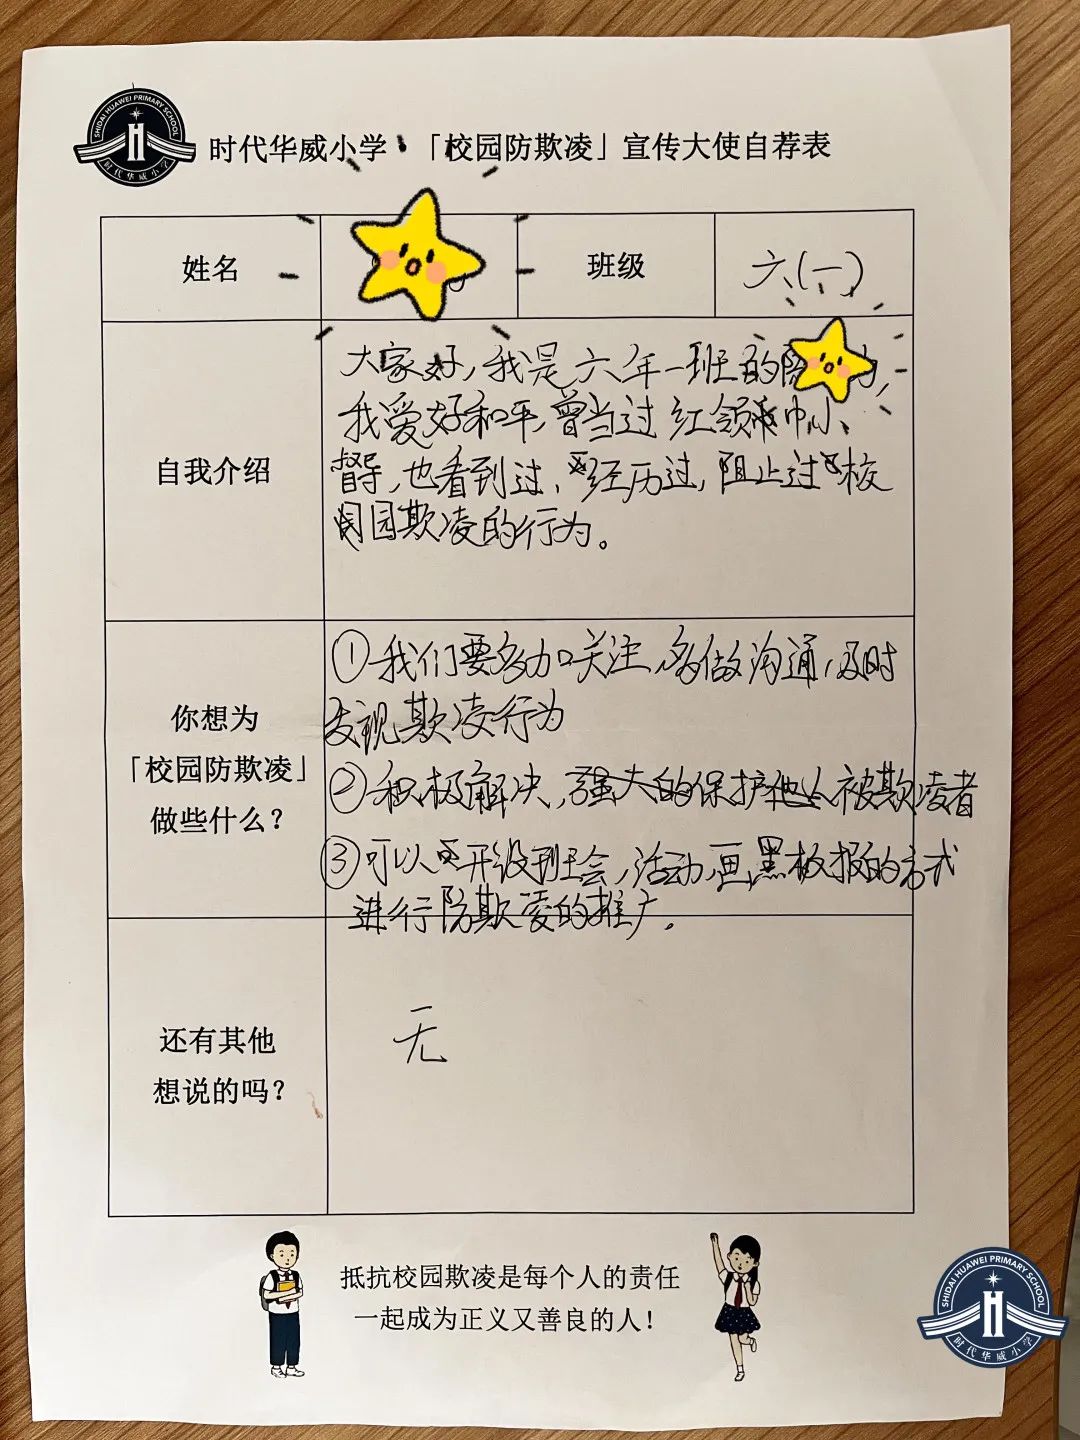 SHIDAI HUAWEI PRIMARY SCHOOL
时代华威小学
时代华威小学·「校园防欺凌」宣传大使自荐表
姓名
班级
六(一)
自我介绍
大家好,我是六年一班的
我爱好和平,曾当过红领巾小
督导,也看到过、经历过,阻止过校
园欺凌的行为。
你想为
「校园防欺凌」
做些什么?
①我们要多加关注,多做沟通,及时
发现欺凌行为
②积极解决,强大的保护被欺凌者
③可以开设班会,活动,画黑板报的方式
进行防欺凌的推广。
还有其他
想说的吗?
无
抵抗校园欺凌是每个人的责任
一起成为正义又善良的人!
SHIDAI HUAWEI PRIMARY SCHOOL
时代华威小学